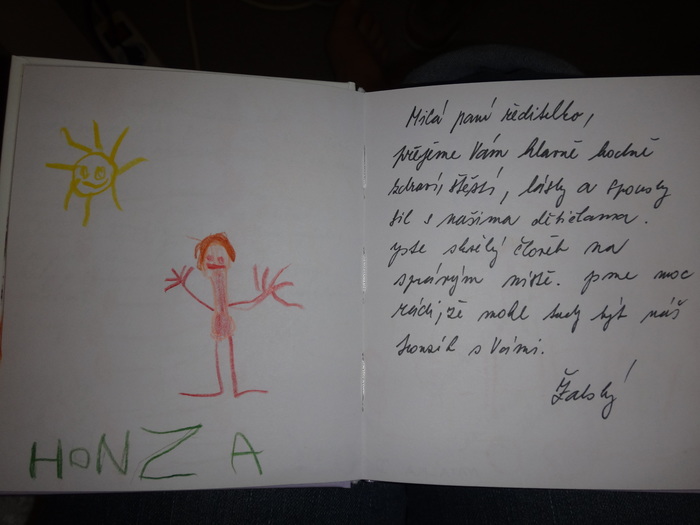 HONZA
Milá paní ředitelko,
přejeme Vám hlavně hodně
zdraví, štěstí, lásky a spousty
sil s našima dětičkama.
Jste skvělý člověk na
správným místě. Jsme moc
rádi, že mohl tady být náš
Honzík s Vámi.
Žalský